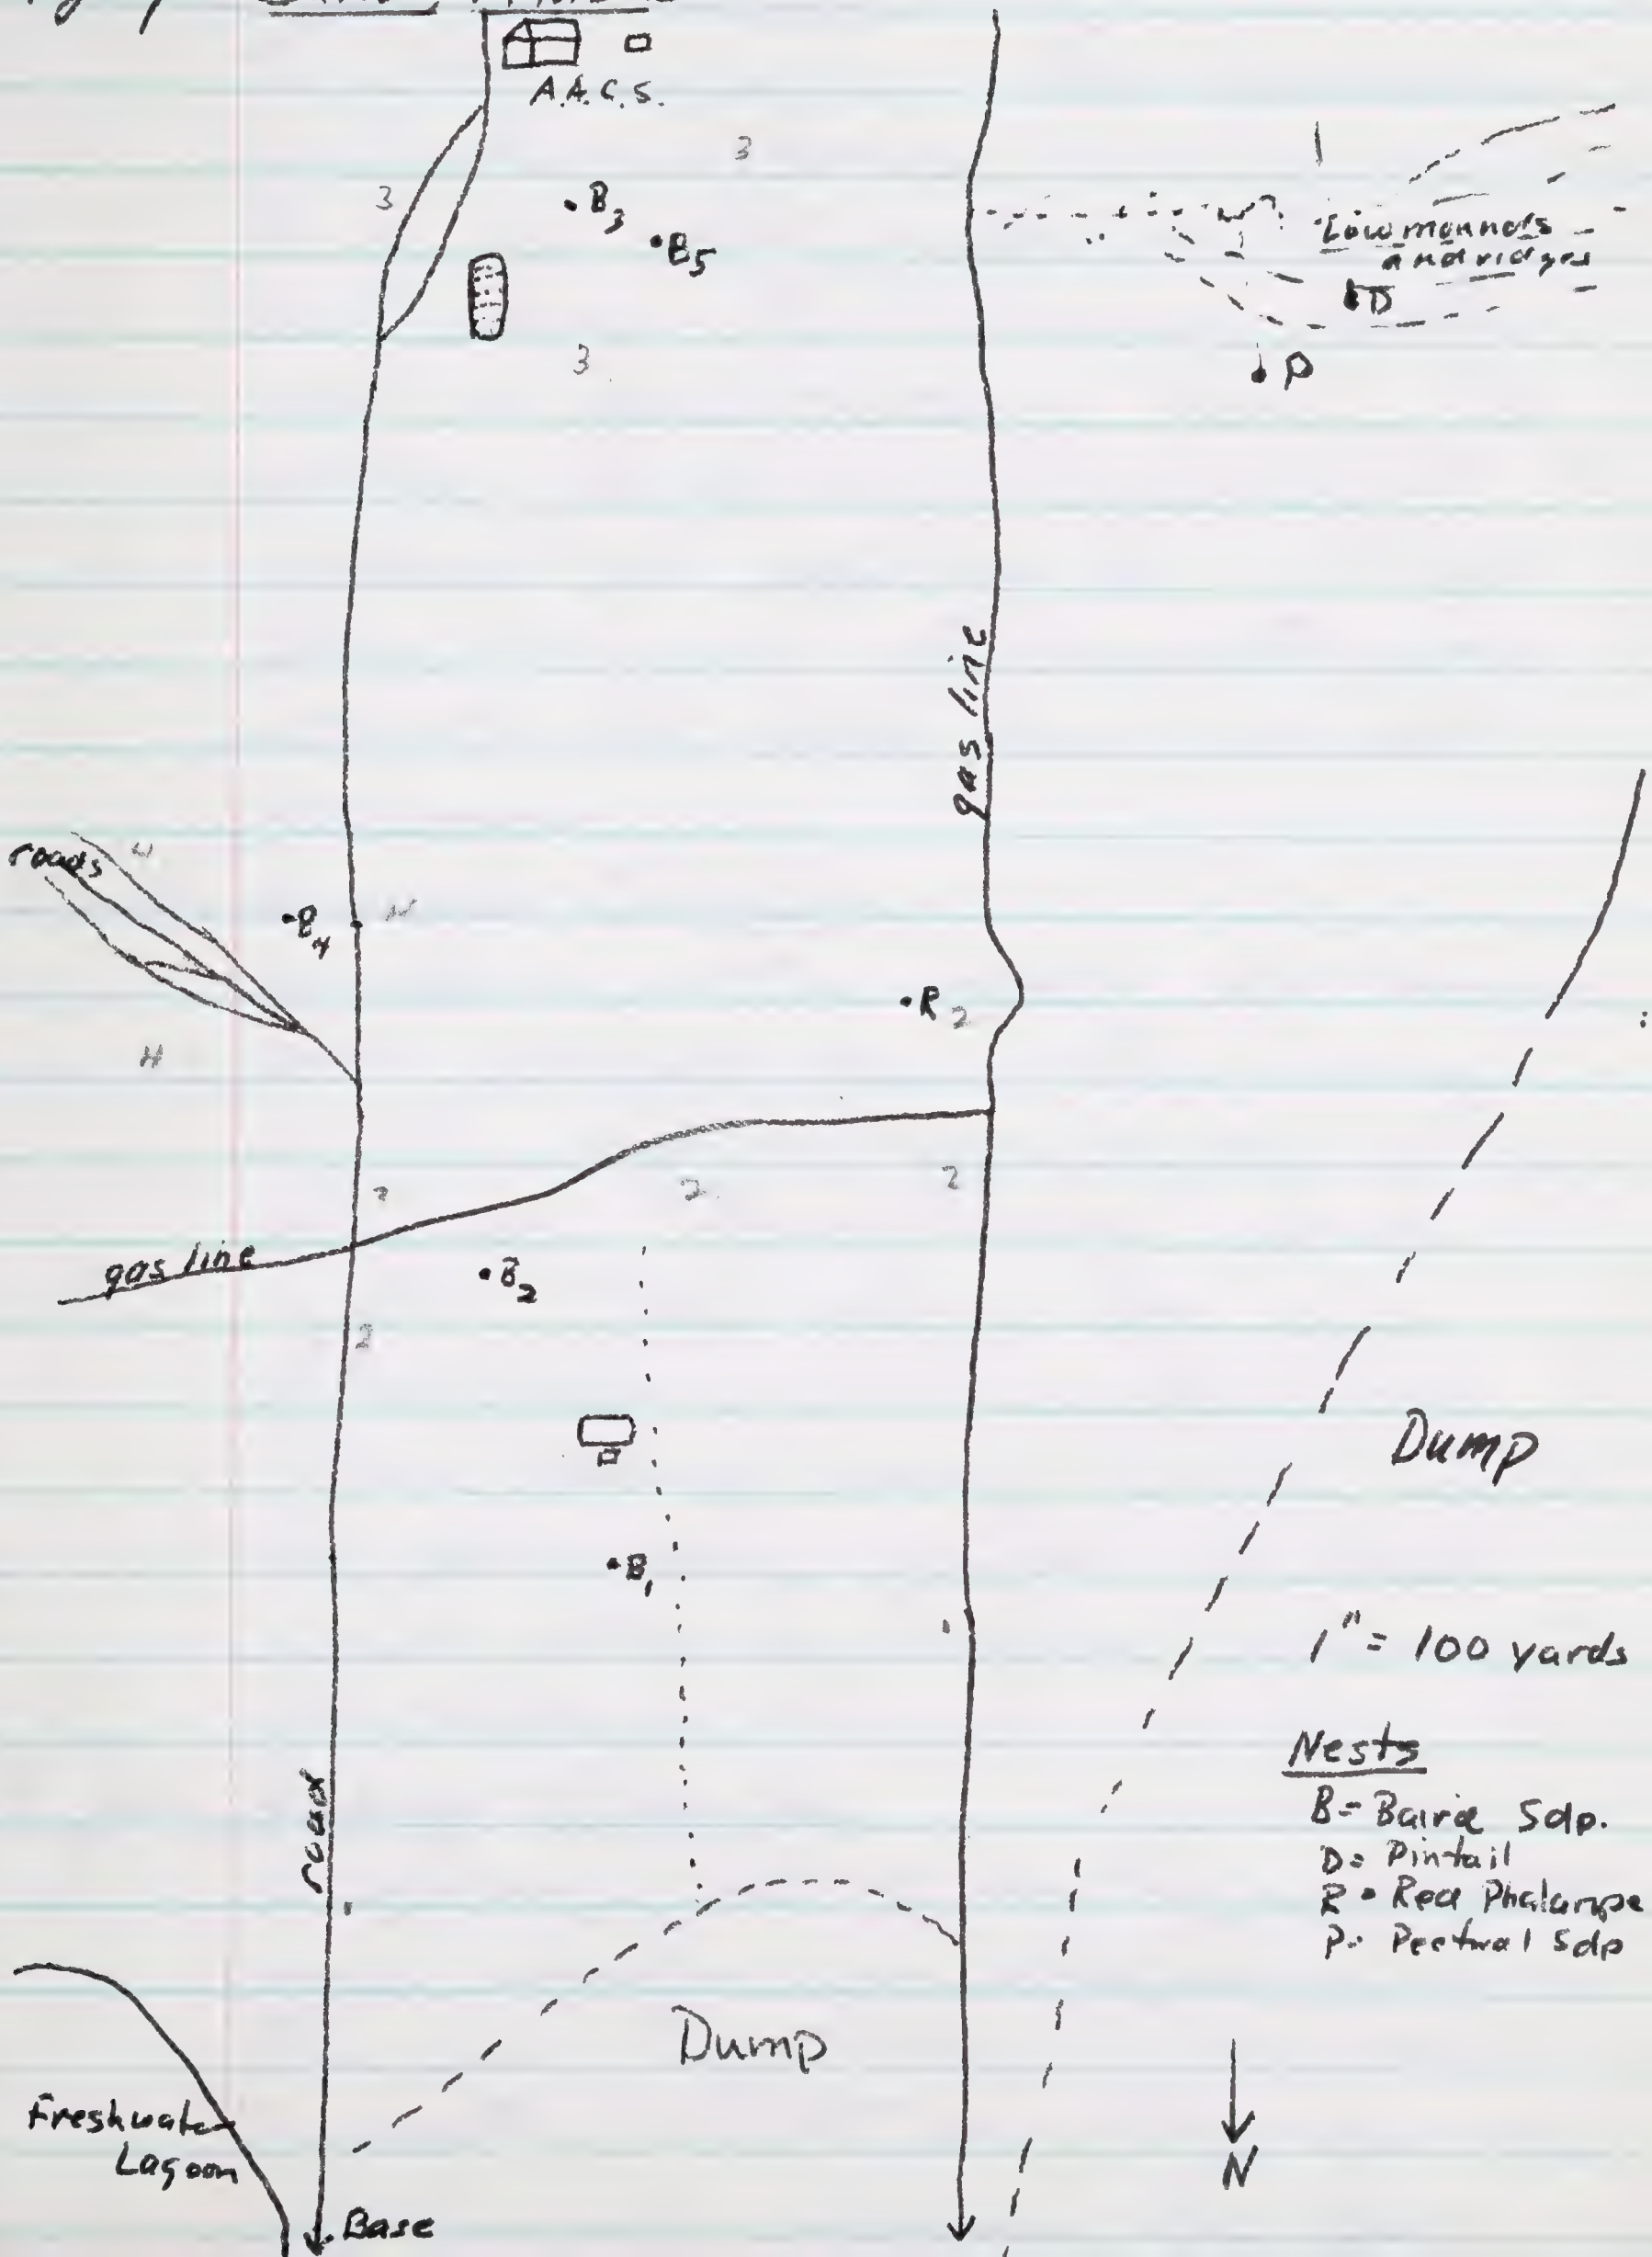 A.A.C.S.
3
3
B3
B5
Low mounds
and ridges
D
3
P
gas line
roads
B4
R2
H
2
2
2
gas line
B2
2
Dump
B1
1" = 100 yards
Nests
B = Baird Sdp.
D = Pintail
R = Red Phalarope
P = Pectoral Sdp
road
Dump
Freshwater
Lagoon
N
Base